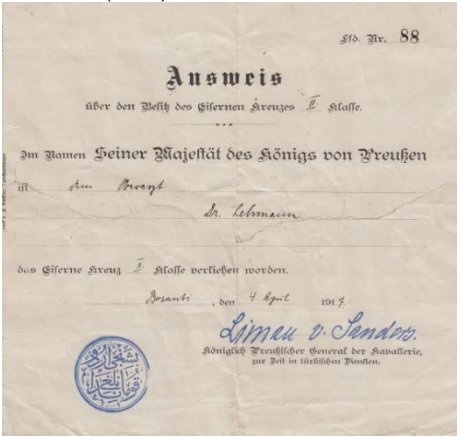 Lfd. Nr. 88
Ausweis
über den Besitz des Eisernen Kreuzes II Klasse.
Im Namen Seiner Majestät des Königs von Preußen
ist dem Oberarzt
Dr. Lehmann
das Eiserne Kreuz II Klasse verliehen worden.
Bozanti, den 4 April 1917
Liman v. Sanders.
Königlich Preußischer General der Kavallerie,
zur Zeit in türkischen Diensten.